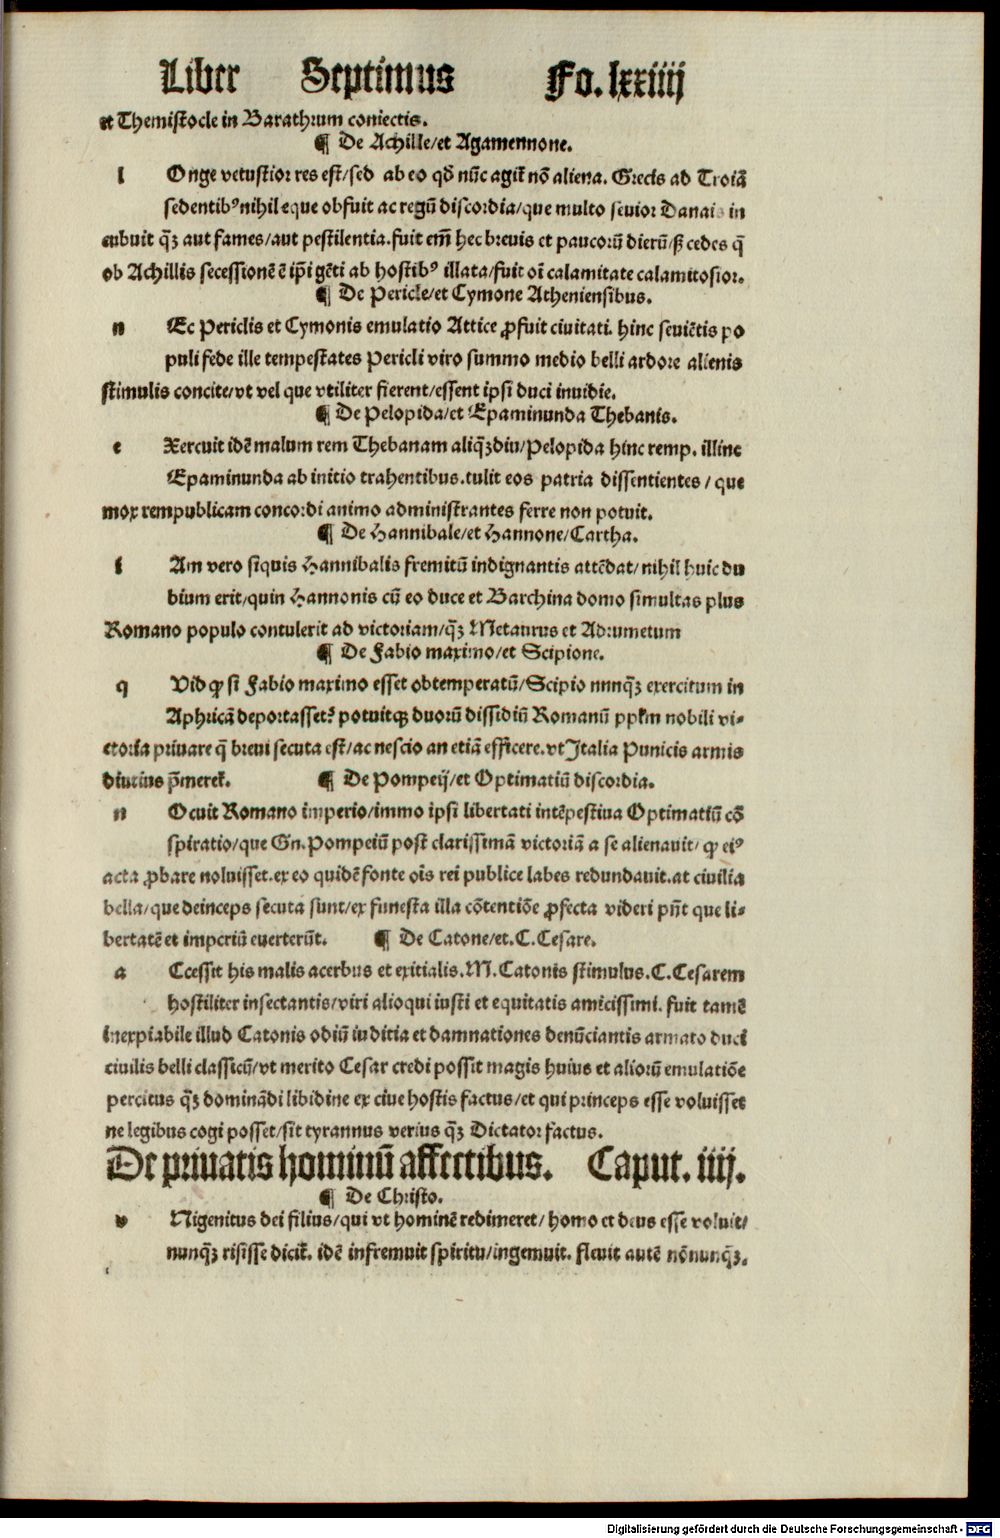 Liber Septimus Fo. lxxiiij
et Themistocle in Barathrum coniectis.
¶ De Achille/et Agamennone.
l Onge vetustior res est/sed ab eo qď nũc agit̃ nõ aliena. Grecis ad Troiã
sedentibꝰ nihil eque obfuit ac regũ discordia/que multo seuior Danais in
cubuit q̃ꝫ aut fames/aut pestilentia. fuit em̃ hec breuis et paucorũ dierũ/ß cedes q̃
ob Achillis secessionẽ ẽ ip̃i gẽti ab hostibꝰ illata/fuit oĩ calamitate calamitosior.
¶ De Pericle/et Cymone Atheniensibus.
n Ec Periclis et Cymonis emulatio Attice ꝓfuit ciuitati. hinc seuiẽtis po
puli fede ille tempestates Pericli viro summo medio belli ardore alienis
stimulis concite/vt vel que vtiliter fierent/essent ipsi duci inuidie.
¶ De Pelopida/et Epaminunda Thebanis.
e Xercuit idẽ malum rem Thebanam aliq̃ꝫdiu/Pelopida hinc remp. illinc
Epaminunda ab initio trahentibus. tulit eos patria dissentientes / que
mox rempublicam concordi animo administrantes ferre non potuit.
¶ De Hannibale/et Hannone/Cartha.
i Am vero siquis Hannibalis fremitũ indignantis attẽdat/nihil huic du
bium erit/quin Hannonis cũ eo duce et Barchina domo simultas plus
Romano populo contulerit ad victoriam/q̃ꝫ Metaurus et Adrumetum
¶ De Fabio maximo/et Scipione.
q Vid ꝙ si Fabio maximo esset obtemperatũ/Scipio nunq̃ꝫ exercitum in
Aphricã deportasset? potuitqꝫ duorũ dissidiũ Romanũ pp̃lm nobili vi-
ctoria priuare q̃ breui secuta est/ac nescio an etiã efficere. vt Italia Punicis armis
diutius p̃meret̃. ¶ De Pompeij/et Optimatiũ discordia.
n Ocuit Romano imperio/immo ipsi libertati intẽpestiua Optimatiũ cõ
spiratio/que Gn. Pompeiũ post clarissimã victoriã a se alienauit/ ꝙ eiꝰ
acta ꝓbare noluisset. ex eo quidẽ fonte oĩs rei publice labes redundauit. at ciuilia
bella/que deinceps secuta sunt/ex funesta illa cõtentiõe ꝓfecta videri pñt que li-
bertatẽ et imperiũ euerterũt. ¶ De Catone/et. C. Cesare.
a Ccessit his malis acerbus et exitialis. M. Catonis stimulus. C. Cesarem
hostiliter insectantis/viri alioqui iusti et equitatis amicissimi. fuit tamẽ
inexpiabile illud Catonis odiũ iuditia et damnationes denũciantis armato duci
ciuilis belli classicũ/vt merito Cesar credi possit magis huius et aliorũ emulatiõe
percitus q̃ꝫ dominãdi libidine ex ciue hostis factus/et qui princeps esse voluisset
ne legibus cogi posset/sit tyrannus verius q̃ꝫ Dictator factus.
De priuatis hominũ affectibus. Caput. iiij.
¶ De Christo.
v Nigenitus dei filius/qui vt hominẽ redimeret/ homo et deus esse voluit/
nunq̃ꝫ risisse dicit̃. idẽ infremuit spiritu/ingemuit. fleuit autẽ nõnunq̃ꝫ.
Digitalisierung gefördert durch die Deutsche Forschungsgemeinschaft - DFG